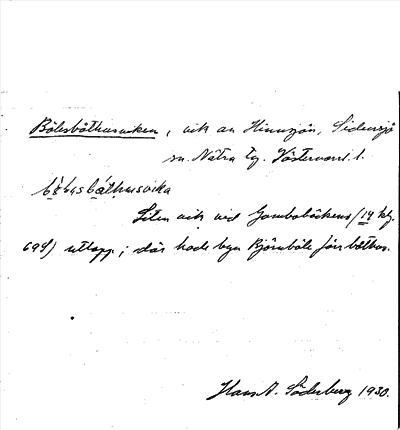 Bölesbåthusviken, vik av Hinnsjön, Sidensjö
sn. Nätra tg. Västernorrl. l.
båthusvika
Liten vik vid (14 kbg
694) utlopp; där hade byn Björnböle förr båthus.
Hans A. Söderberg 1930.